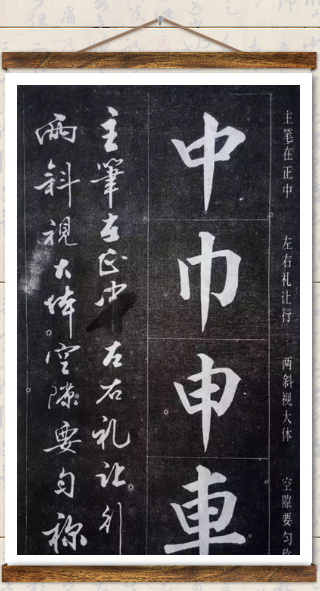 主笔在正中 左右礼让行 两斜视大体 空隙要匀称
中
巾
申
車
主筆在正中左右礼让行
两斜視大体空隙要匀称